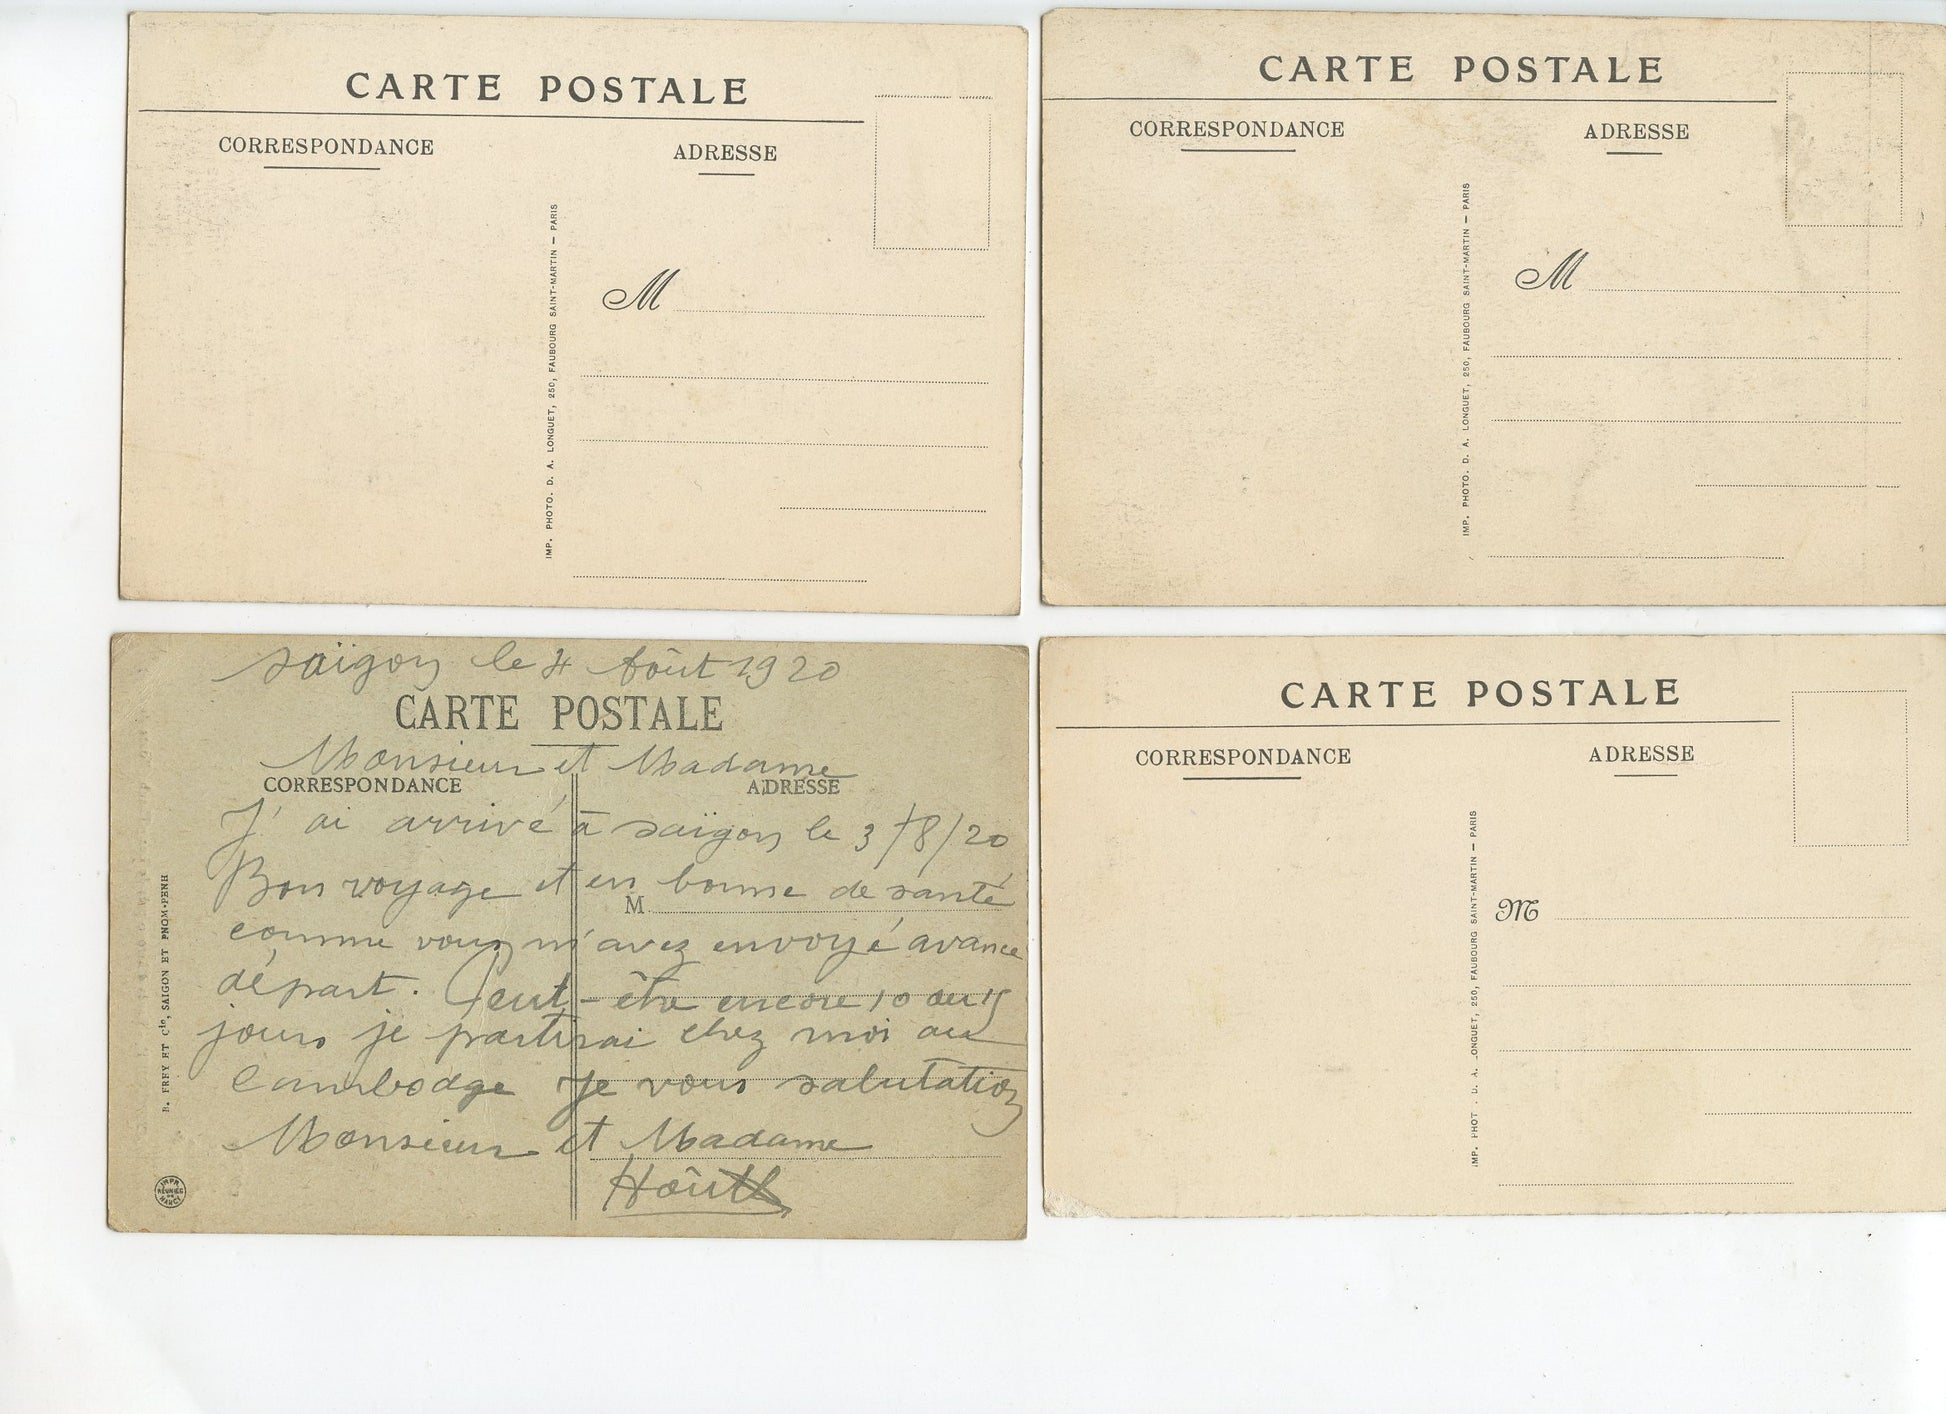 CARTE POSTALE
CORRESPONDANCE
ADRESSE
M
IMP. PHOTO. D. A. LONGUET, 250, FAUBOURG SAINT-MARTIN — PARIS
CARTE POSTALE
CORRESPONDANCE
ADRESSE
M
IMP. PHOTO. D. A. LONGUET, 250, FAUBOURG SAINT-MARTIN — PARIS
saïgon le 4 Août 1920
CARTE POSTALE
Monsieur et Madame
CORRESPONDANCE
ADRESSE
J'ai arrivé à saïgon le 3/8/20
Bon voyage et en bonne de santé
M
comme vous m'avez envoyé avance
départ. Peut-être encore 10 ou 15
jours je partirai chez moi au
Cambodge Je vous salutation
Monsieur et Madame
Hôuth
B. FREY ET Cie, SAIGON ET PNOM-PENH
IMPR. RÉUNIES DE NANCY
CARTE POSTALE
CORRESPONDANCE
ADRESSE
M
IMP. PHOT . D. A. LONGUET, 250, FAUBOURG SAINT-MARTIN — PARIS